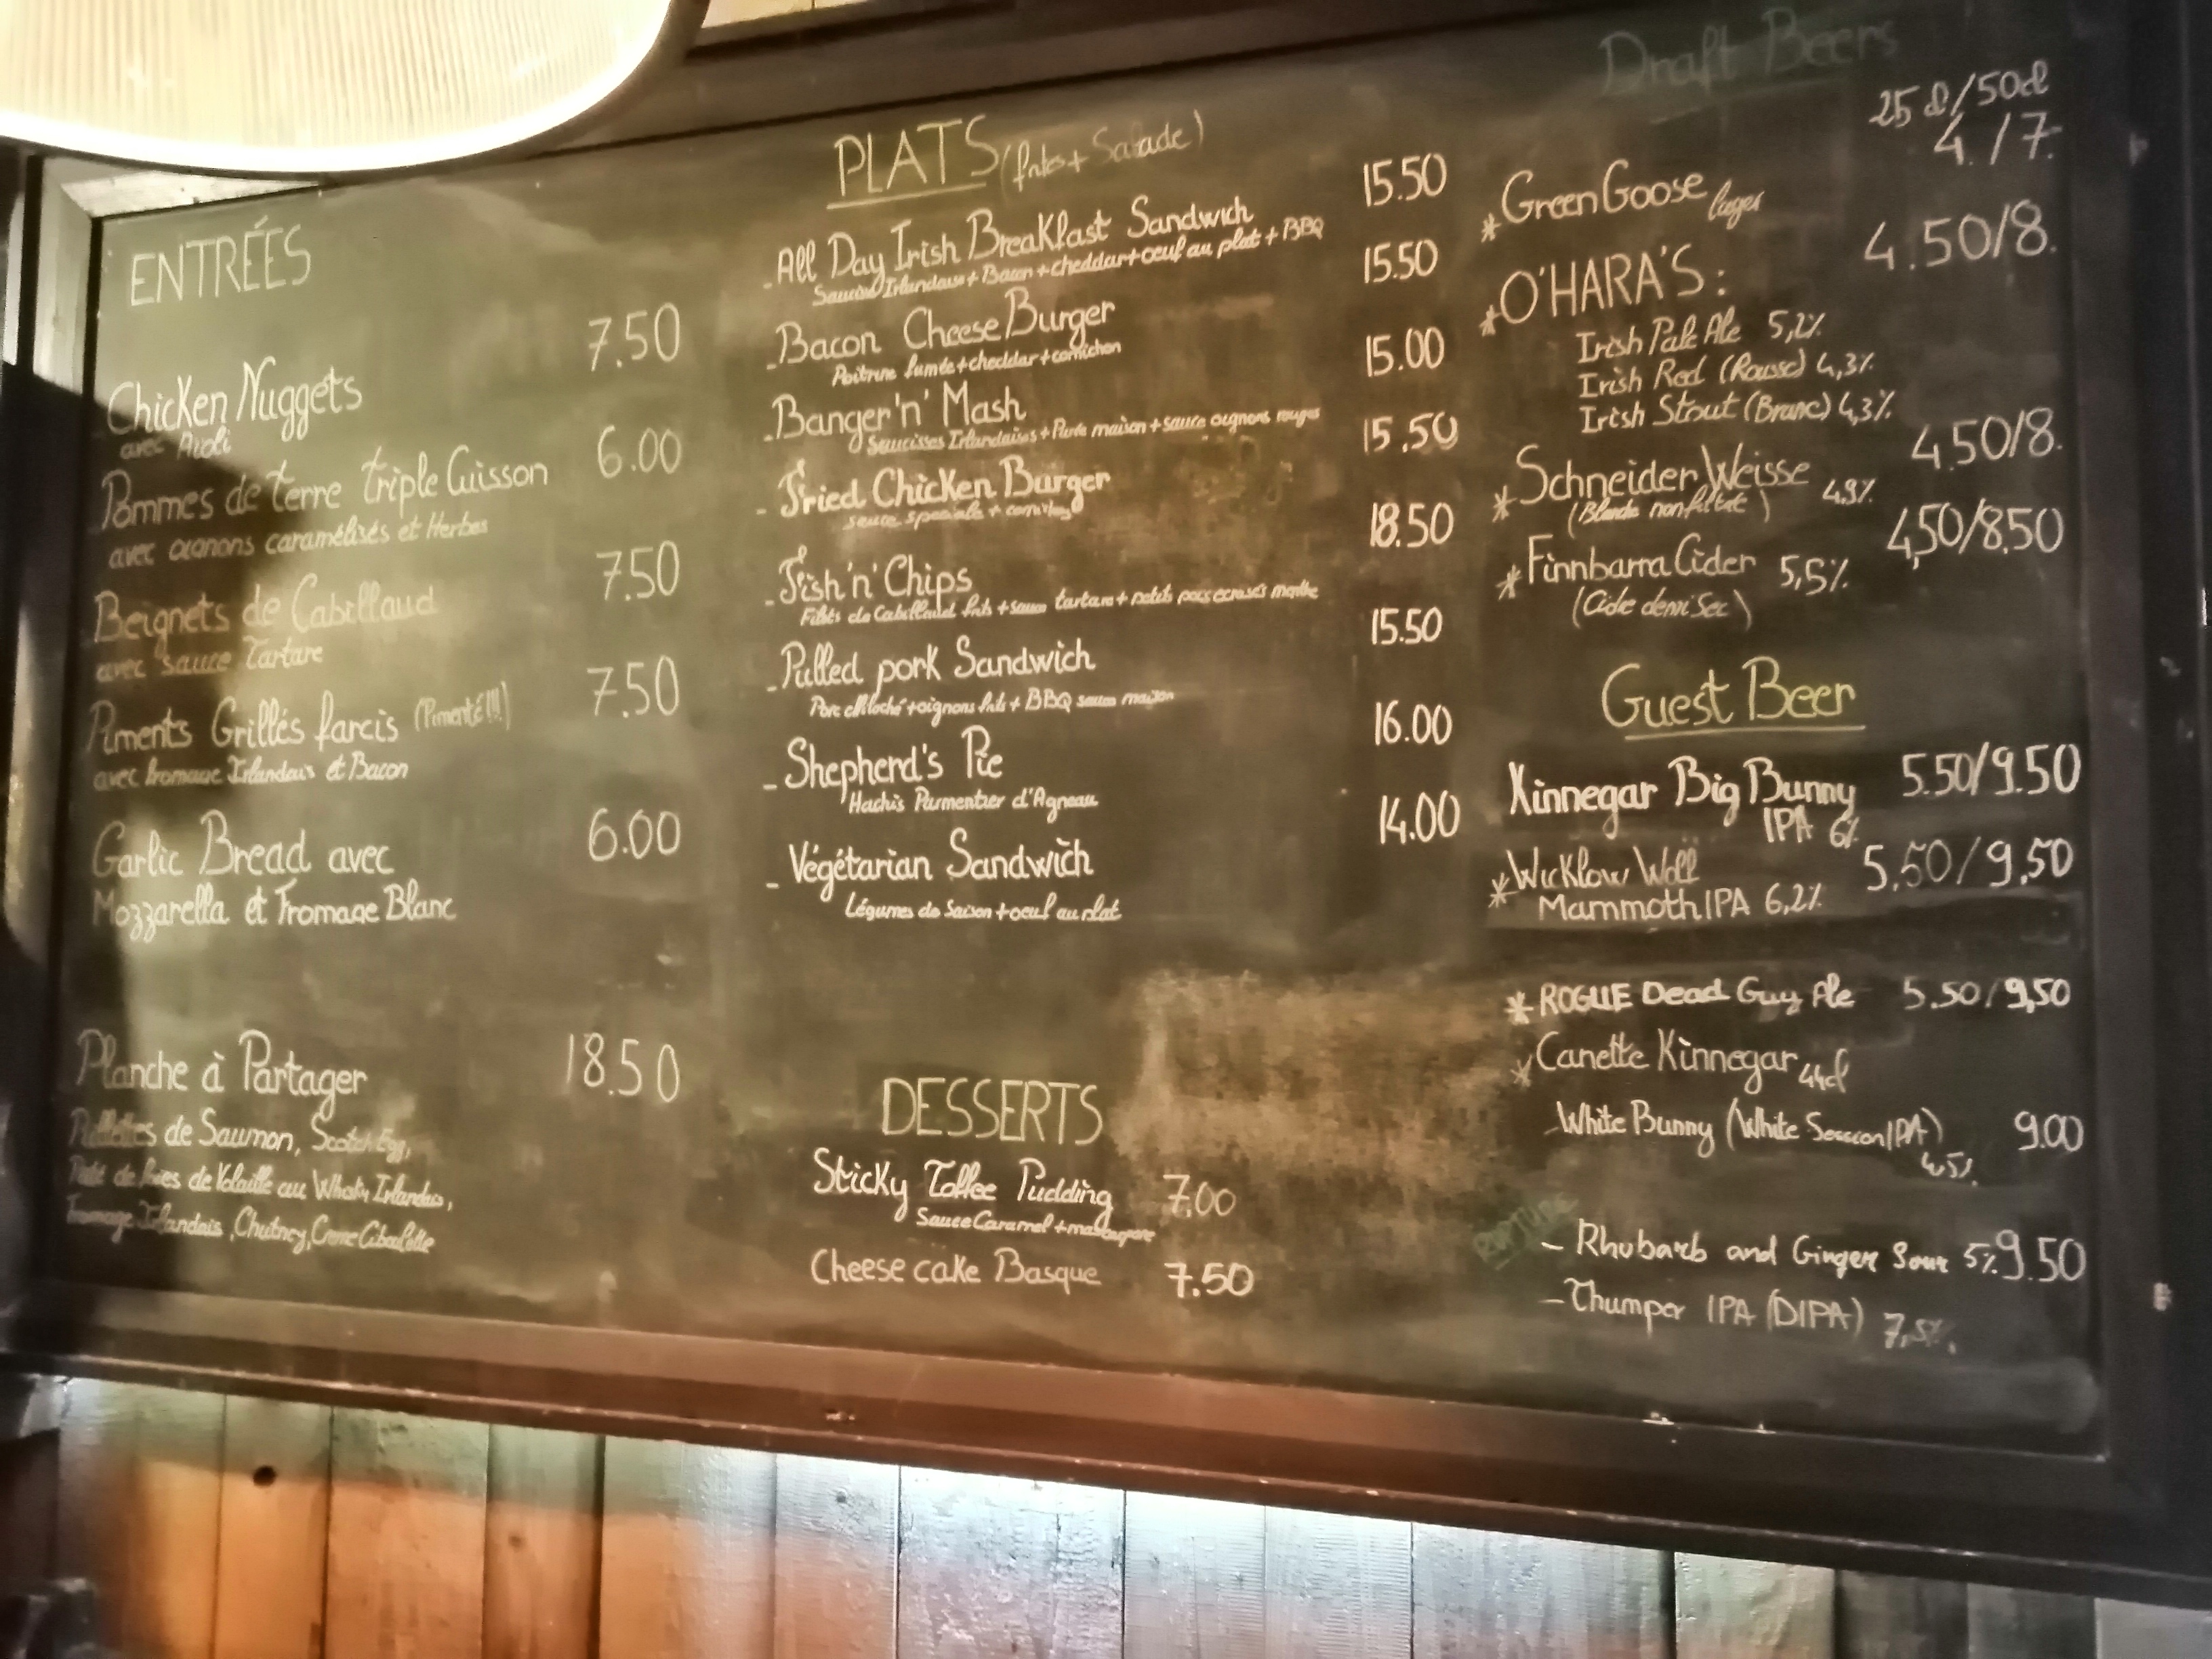 ENTRÉES
Chicken Nuggets 7.50
avec Aioli
Pommes de terre triple Cuisson 6.00
avec oignons caramélisés et Herbes
Beignets de Cabillaud 7.50
avec sauce Tartare
Piments Grillés farcis (Pimenté!!!) 7.50
avec fromage Irlandais et Bacon
Garlic Bread avec 6.00
Mozzarella et Fromage Blanc
Planche à Partager 18.50
de Saumon, Scotch Egg,
de foies de Volaille au Whisky Irlandais,
Fromage Irlandais, Chutney, Creme Ciboulette
PLATS (frites + Salade)
- All Day Irish Breakfast Sandwich 15.50
Saucisse Irlandaise + Bacon + cheddar + oeuf au plat + BBQ
- Bacon Cheese Burger 15.50
Poitrine fumée + cheddar + cornichon
- Banger 'n' Mash 15.00
Saucisses Irlandaises + Purée maison + sauce oignons rouges
- Fried Chicken Burger 15.50
sauce speciale +
- Fish 'n' Chips 18.50
Filets de Cabillaud frits + sauce tartare + petits pois écrasés menthe
- Pulled pork Sandwich 15.50
Porc effiloché + oignons frits + BBQ sauce maison
- Shepherd's Pie 16.00
Hachis Parmentier d'Agneau
- Végétarian Sandwich 14.00
Légumes de Saison + oeuf au plat
DESSERTS
Sticky Toffee Pudding 7.00
Sauce Caramel + mascarpone
Cheese cake Basque 7.50
Draft Beers
25cl/50cl
* Green Goose lager 4./7.
* O'HARA'S: 4.50/8.
Irish Pale Ale 5,2%
Irish Red (Rousse) 4,3%
Irish Stout (Brune) 4,3%
* Schneider Weisse 4,9% 4.50/8.
(Blonde non filtrée)
* Finnbarra Cider 5,5% 4,50/8.50
(Cidre demi Sec)
Guest Beer
Kinnegar Big Bunny 5.50/9.50
IPA 6%
* Wicklow Wolf 5.50/9,50
Mammoth IPA 6,2%
* ROGUE Dead Guy Ale 5.50/9,50
* Canette Kinnegar 44cl
- White Bunny (White Session IPA) 9.00
4,5%
- Rhubarb and Ginger Sour 5% 9.50
- Thumper IPA (DIPA) 7,5%